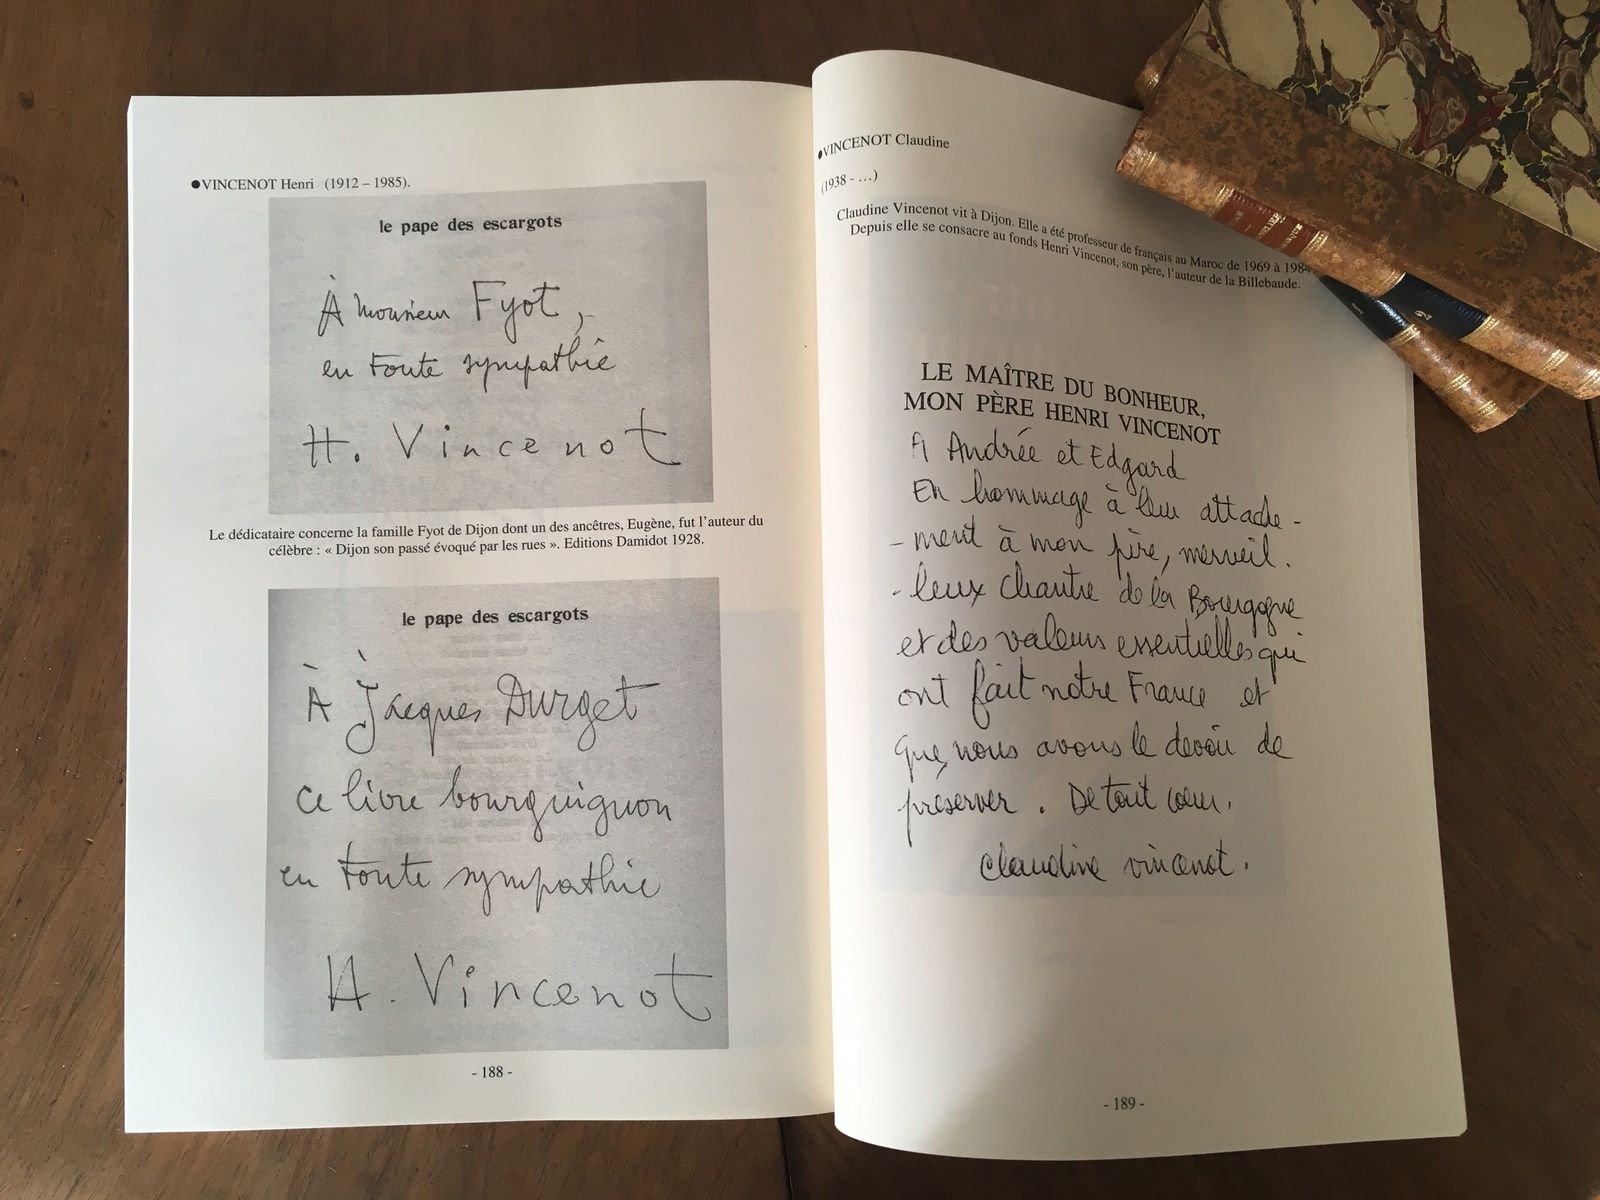 ●VINCENOT Henri (1912 – 1985).
le pape des escargots
À Monsieur Fyot,
en toute sympathie
H. Vincenot
Le dédicataire concerne la famille Fyot de Dijon dont un des ancêtres, Eugène, fut l'auteur du
célèbre : « Dijon son passé évoqué par les rues ». Editions Damidot 1928.
le pape des escargots
À Jacques Durget
ce livre bourguignon
en toute sympathie
H. Vincenot
- 188 -
●VINCENOT Claudine
(1938 - …)
Claudine Vincenot vit à Dijon. Elle a été professeur de français au Maroc de 1969 à 1984
Depuis elle se consacre au fonds Henri Vincenot, son père, l'auteur de la Billebaude.
LE MAÎTRE DU BONHEUR,
MON PÈRE HENRI VINCENOT
A Andrée et Edgard
En hommage à leur attache-
-ment à mon père, merveil.
-leux chantre de la Bourgogne
et des valeurs essentielles qui
ont fait notre France et
que nous avons le devoir de
préserver. De tout cœur.
Claudine Vincenot.
- 189 -
2